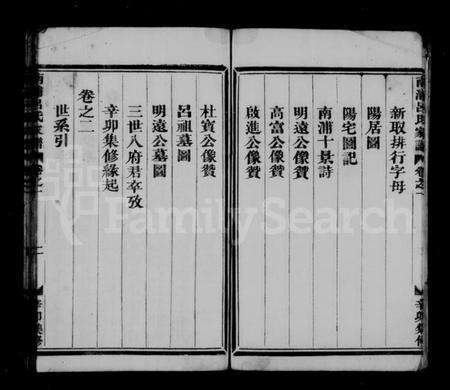 南浦呂氏家譜 卷之一
辛卯集修
新取排行字母
陽居圖
陽宅圖記
南浦十景詩
明遠公像贊
高富公像贊
啟進公像贊
杜賓公像贊
呂祖墓圖
明遠公墓圖
三世八府君卒攷
辛卯集修緣起
卷之二
世系引
南浦呂氏家譜 卷之一
一
辛卯集修
FamilySearch